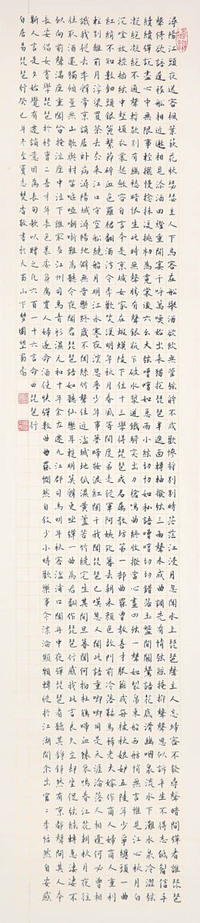 潯陽江頭夜送客楓葉荻花秋瑟瑟主人下馬客在船舉酒欲飲無管絃醉不成歡慘將別別時茫茫江浸月忽聞水上琵琶聲主人忘歸客不發尋聲暗問彈者誰琵琶
聲停欲語遲移船相近邀相見添酒回燈重開宴千呼萬喚始出來猶抱琵琶半遮面轉軸撥絃三兩聲未成曲調先有情絃絃掩抑聲聲思似訴平生不得志低眉信手
續續彈說盡心中無限事輕攏慢撚抹復挑初為霓裳後六幺大絃嘈嘈如急雨小絃切切如私語嘈嘈切切錯雜彈大珠小珠落玉盤間關鶯語花底滑幽咽泉流水下灘水泉冷澀絃
凝絕凝絕不通聲暫歇別有幽愁暗恨生此時無聲勝有聲銀瓶乍破水漿迸鐵騎突出刀槍鳴曲終收撥當心畫四絃一聲如裂帛東船西舫悄無言唯見江心秋月白
沉吟放撥插絃中整頓衣裳起斂容自言本是京城女家在蝦蟆陵下住十三學得琵琶成名屬教坊第一部曲罷曾教善才服妝成每被秋娘妒五陵年少爭纏頭一曲
紅綃不知數鈿頭銀篦擊節碎血色羅裙翻酒污今年歡笑復明年秋月春風等閒度弟走從軍阿姨死暮去朝來顏色故門前冷落車馬稀老大嫁作商人婦商人重利
輕別離前月浮梁買茶去去來江口守空船繞船月明江水寒夜深忽夢少年事夢啼妝淚紅闌干我聞琵琶已嘆息又聞此語重唧唧同是天涯淪落人相逢何必曾相
識我從去年辭帝京謫居臥病潯陽城潯陽地僻無音樂終歲不聞絲竹聲住近湓江地低濕黃蘆苦竹繞宅生其間旦暮聞何物杜鵑啼血猿哀鳴春江花朝秋月夜往
往取酒還獨傾豈無山歌與村笛嘔啞嘲哳難為聽今夜聞君琵琶語如聽仙樂耳暫明莫辭更坐彈一曲為君翻作琵琶行感我此言良久立卻坐促絃絃轉急淒淒不
似向前聲滿座重聞皆掩泣座中泣下誰最多江州司馬青衫濕元和十年余左遷九江郡司馬明年秋送客湓浦口聞舟中夜彈琵琶者聽其音錚錚然有京都聲問其人本
長安倡女嘗學琵琶於穆曹二善才年長色衰委身為賈人婦遂命酒使快彈數曲曲罷憫然自敘少小時歡樂事今漂淪憔悴轉徙於江湖間余出官二年恬然自安感
斯人言是夕始覺有遷謫意因為長句歌以贈之凡六百一十六言命曰琵琶行
白居易琵琶行癸巳年冬